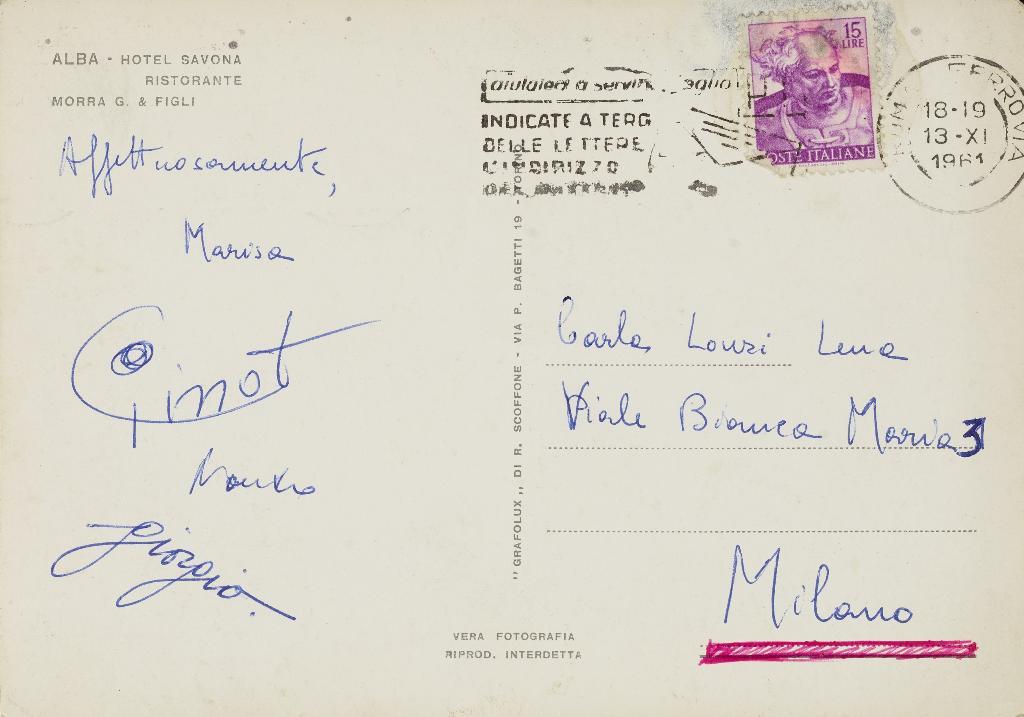 ALBA - HOTEL SAVONA
RISTORANTE
MORRA G. & FIGLI
Affettuosamente,
Marisa
Pinot
Giorgio.
aiutateci a servirvi meglio
INDICATE A TERGO
DELLE LETTERE
L'INDIRIZZO
DEL MITTENTE
15
LIRE
POSTE ITALIANE
FERROVIA
18-19
13-XI
1961
"GRAFOLUX" DI R. SCOFFONE - VIA P. BAGETTI 19 - TORINO
Carla Lonzi Lena
Viale Bianca Maria 3
Milano
VERA FOTOGRAFIA
RIPROD. INTERDETTA